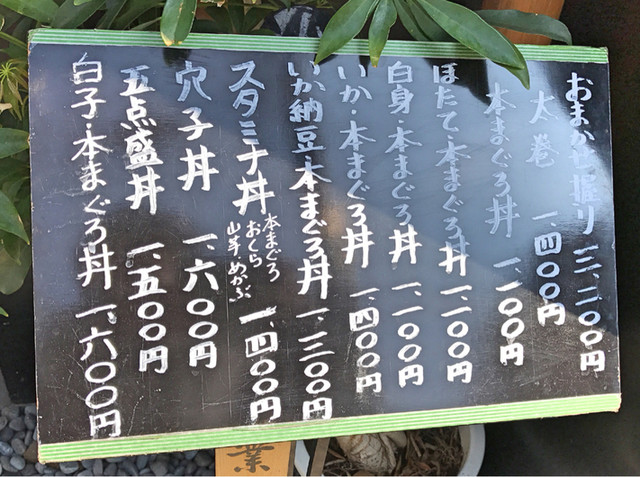 おまかせ握り 三、二〇〇円
太巻 一、四〇〇円
本まぐろ丼 一、一〇〇円
ほたて・本まぐろ丼 一、一〇〇円
白身・本まぐろ丼 一、一〇〇円
いか・本まぐろ丼 一、四〇〇円
いか納豆・本まぐろ丼 一、三〇〇円
スタミナ丼 本まぐろ おくら 山芋・めかぶ 一、四〇〇円
穴子丼 一、六〇〇円
五点盛丼 一、五〇〇円
白子・本まぐろ丼 一、六〇〇円
業